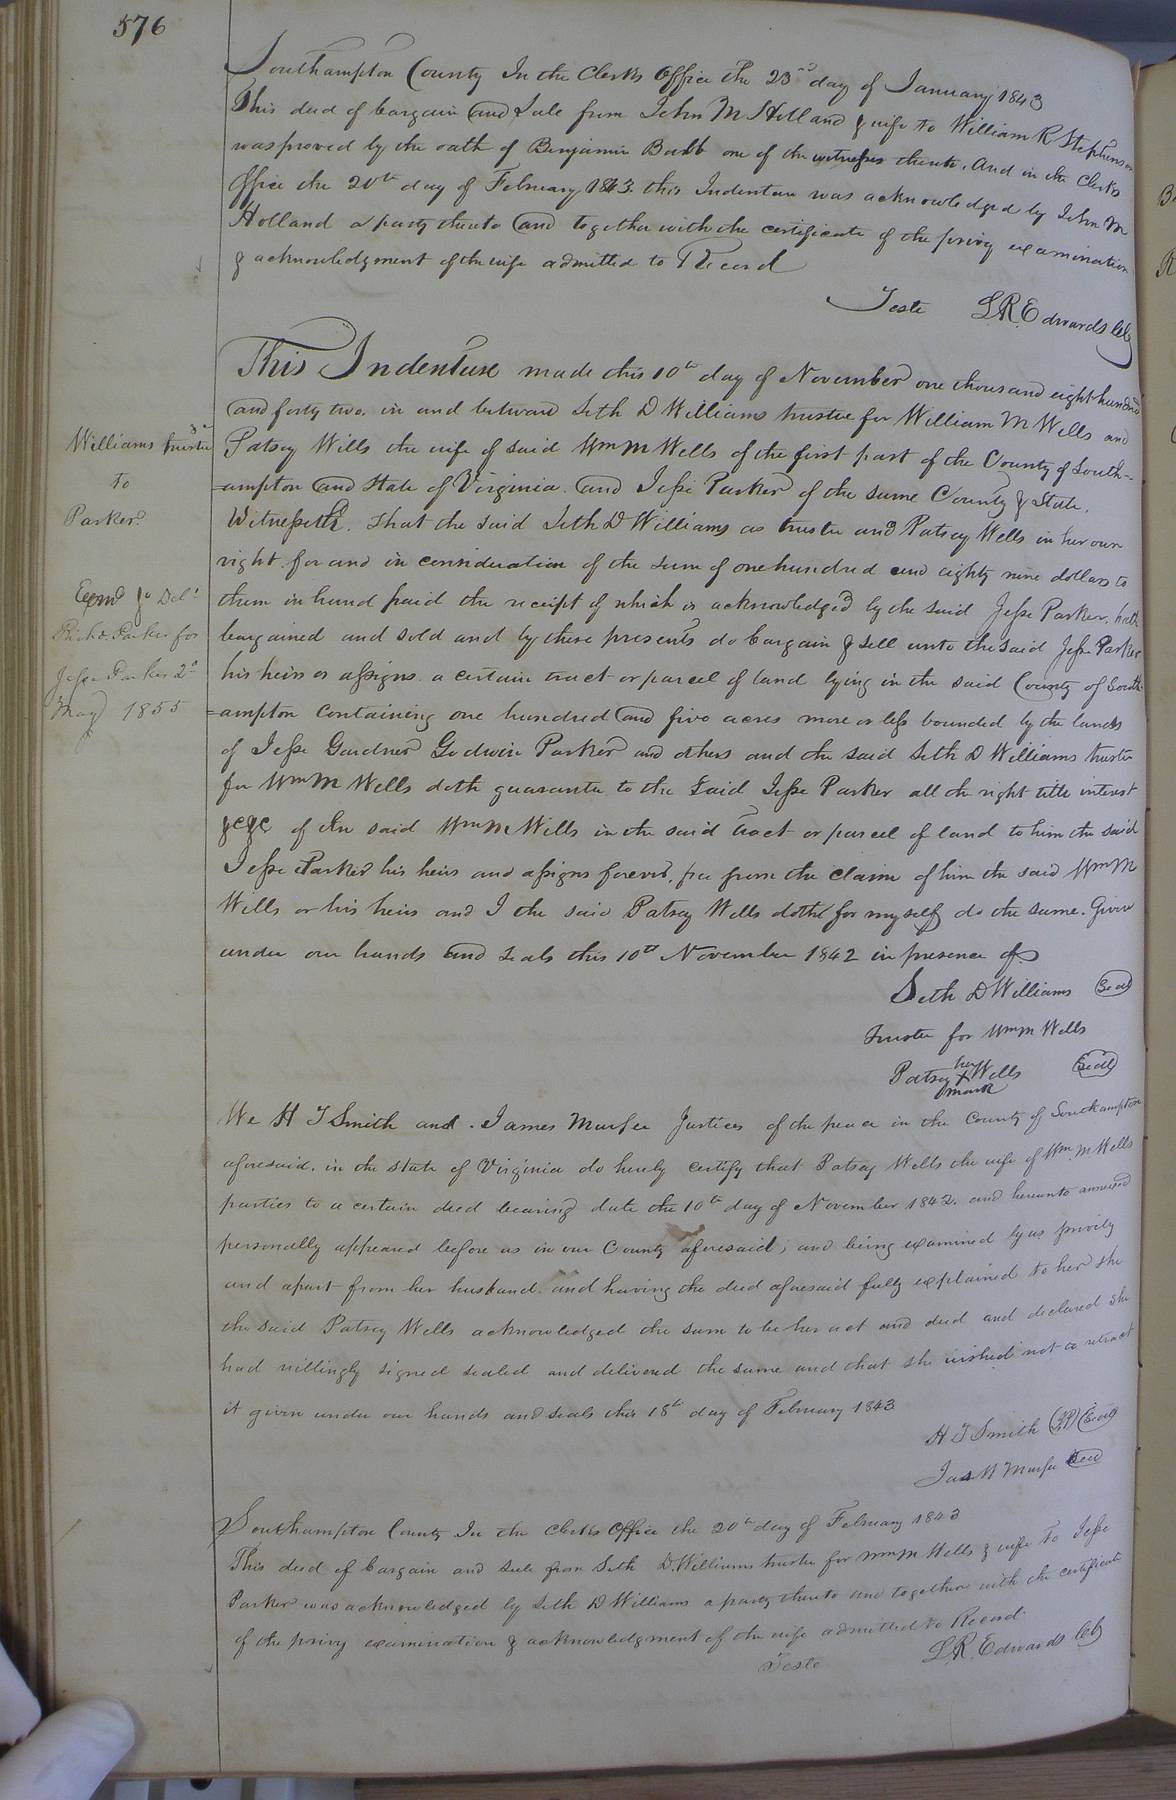 576
Southampton County In the Clerks Office the 23rd day of January 1843
This deed of bargain and Sale from John M Holland & wife to William R Stephenson
was proved by the oath of Benjamin Babb one of the witnesses thereto. And in the Clerks
Office the 20th day of February 1843 this Indenture was acknowledged by John M
Holland a party thereto and together with the certificate of the privy examination
& acknowledgment of the wife admitted to Record
Teste L.R. Edwards Clk
This Indenture made this 10th day of November one thousand eight hundred
and forty two. in and between Seth D Williams trustee for William M Wells and
Williams trustee
to
Parker
Patsey Wells the wife of said Wm M Wells of the first part of the County of South-
=ampton and State of Virginia. and Jesse Parker of the same County & State.
Witnesseth. That the said Seth D Williams as trustee and Patsey Wells in her own
right for and in consideration of the sum of one hundred and eighty nine dollars to
Exmd & Deld
Richd Parker for
Jesse Parker 2d
May 1855
them in hand paid the receipt of which is acknowledged by the said Jesse Parker, hath
bargained and sold and by these presents do bargain & sell unto the said Jesse Parker
his heirs or assigns a certain tract or parcel of land lying in the said County of South-
=ampton containing one hundred and five acres more or less bounded by the lands
of Jesse Gardner Godwin Parker and others and the said Seth D Williams trustee
for Wm M Wells doth guarantee to the Said Jesse Parker all the right title interest
&c&c of the said Wm M Wells in the said tract or parcel of land to him the said
Jesse Parker his heirs and assigns forever, free from the claim of him the said Wm M
Wells or his heirs and I the said Patsey Wells doth for myself do the same. Given
under our hands and seals this 10th November 1842 in presence of
Seth D Williams Seal
Trustee for Wm M Wells
Patsey her X mark Wells Seal
We H T Smith and James Murfee Justices of the peace in the County of Southampton
aforesaid. in the State of Virginia do hereby certify that Patsey Wells the wife of Wm. M Wells
parties to a certain deed bearing date the 10th day of November 1842. and hereunto annexed
personally appeared before us in our County aforesaid; and being examined by us privily
and apart from her husband. and having the deed aforesaid fully explained to her she
the said Patsey Wells acknowledged the same to be her act and deed and declared she
had willingly signed sealed and delivered the same and that she wished not to retract
it given under our hands and seals this 18th day of February 1843
H T Smith JP Seal
Jas Murfee Seal
Southampton County In the Clerks Office the 20th day of February 1843
This deed of bargain and sale from Seth D. Williams trustee for Wm M Wells & wife to Jesse
Parker was acknowledged by Seth D Williams a party thereto and together with the certificate
of the privy examination & acknowledgment of the wife admitted to Record.
Teste L.R. Edwards Clk